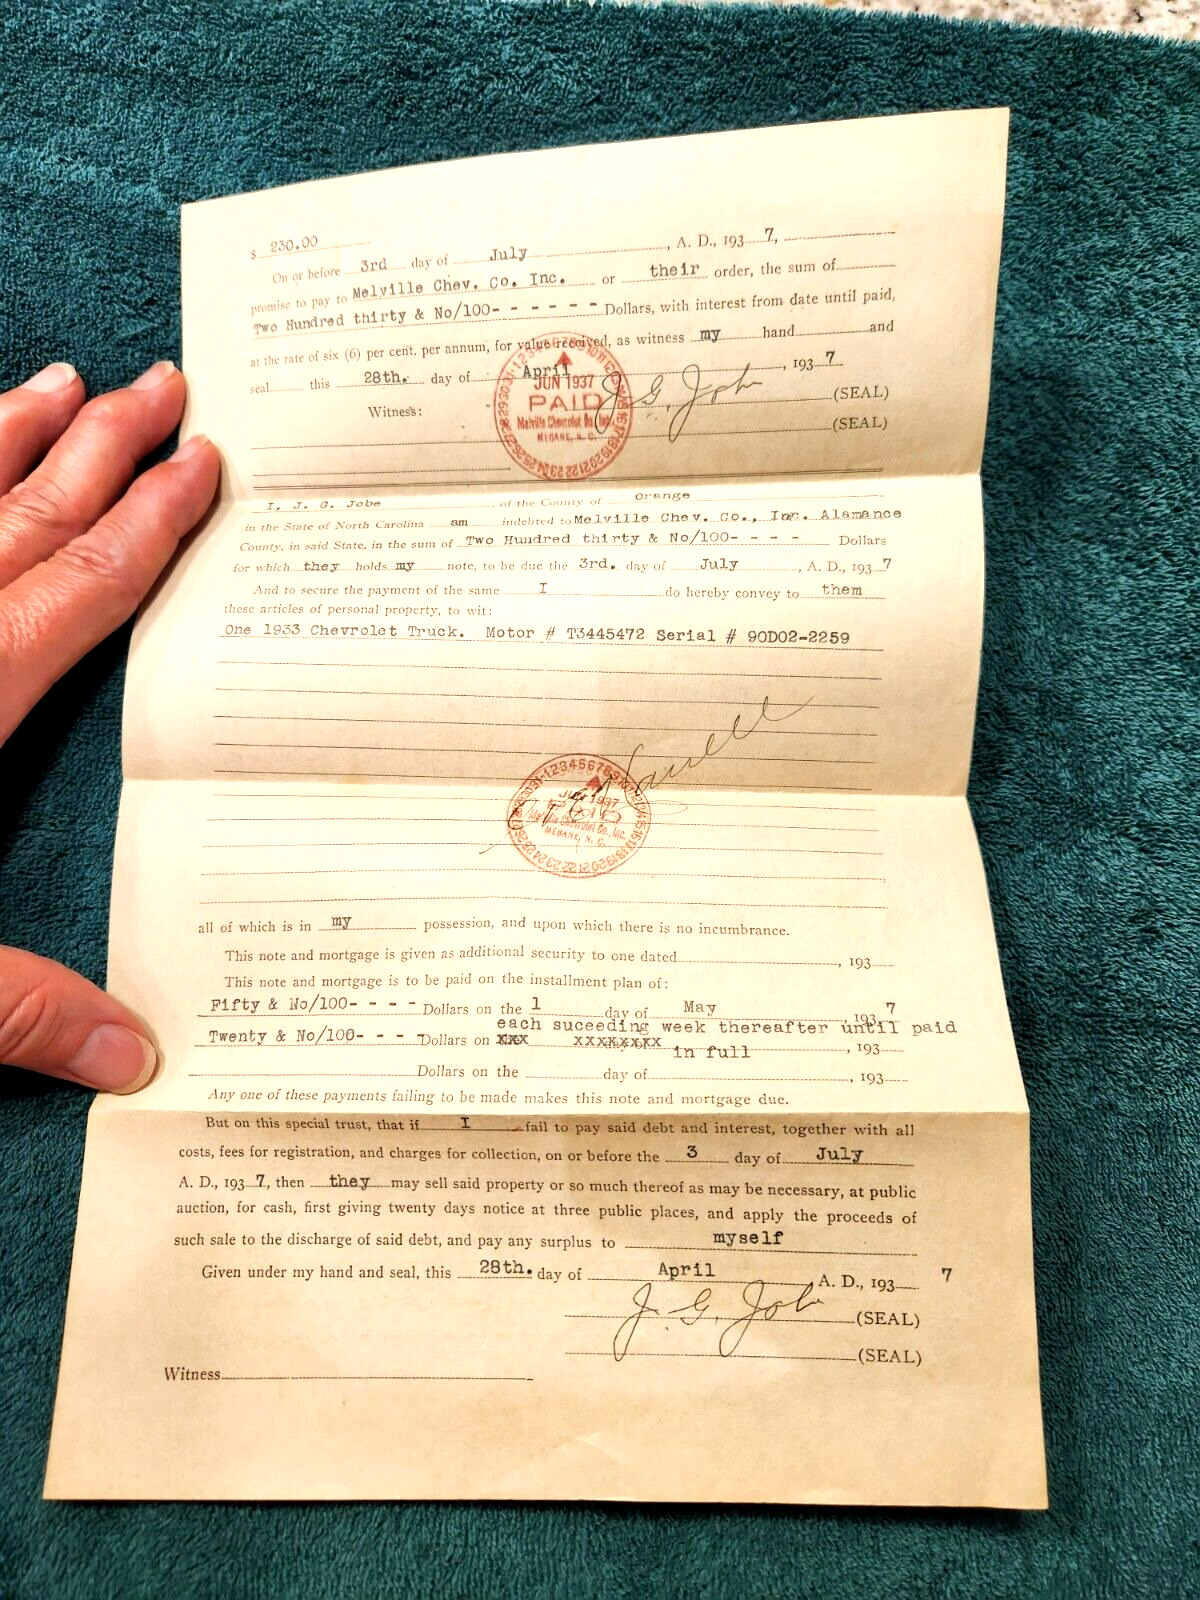 $ 230.00
On or before 3rd day of July, A. D., 193 7,
promise to pay to Melville Chev. Co. Inc. or their order, the sum of
Two Hundred thirty & No/100- - - - - - Dollars, with interest from date until paid,
at the rate of six (6) per cent. per annum, for value received, as witness my hand and
seal this 28th. day of April, 193 7
JUN 1937
PAID
Melville Chevrolet Co., Inc.
MEBANE, N. C.
J. G. Jobe (SEAL)
Witness:
(SEAL)
I, J. G. Jobe, of the County of Orange
in the State of North Carolina am indebted to Melville Chev. Co., Inc. Alamance
County, in said State, in the sum of Two Hundred thirty & No/100- - - - Dollars
for which they holds my note, to be due the 3rd. day of July, A. D., 193 7
And to secure the payment of the same I do hereby convey to them
these articles of personal property, to wit:
One 1933 Chevrolet Truck. Motor # T3445472 Serial # 90D02-2259
JUN 1937
Melville Chevrolet Co., Inc.
MEBANE, N. C.
all of which is in my possession, and upon which there is no incumbrance.
This note and mortgage is given as additional security to one dated, 193
This note and mortgage is to be paid on the installment plan of:
Fifty & No/100- - - - Dollars on the 1 day of May, 193 7
each suceeding week thereafter until paid
Twenty & No/100- - - - Dollars on xxx xxxxxxxx in full, 193
Dollars on the day of, 193
Any one of these payments failing to be made makes this note and mortgage due.
But on this special trust, that if I fail to pay said debt and interest, together with all
costs, fees for registration, and charges for collection, on or before the 3 day of July
A. D., 193 7, then they may sell said property or so much thereof as may be necessary, at public
auction, for cash, first giving twenty days notice at three public places, and apply the proceeds of
such sale to the discharge of said debt, and pay any surplus to myself
Given under my hand and seal, this 28th. day of April A. D., 193 7
J. G. Jobe (SEAL)
(SEAL)
Witness